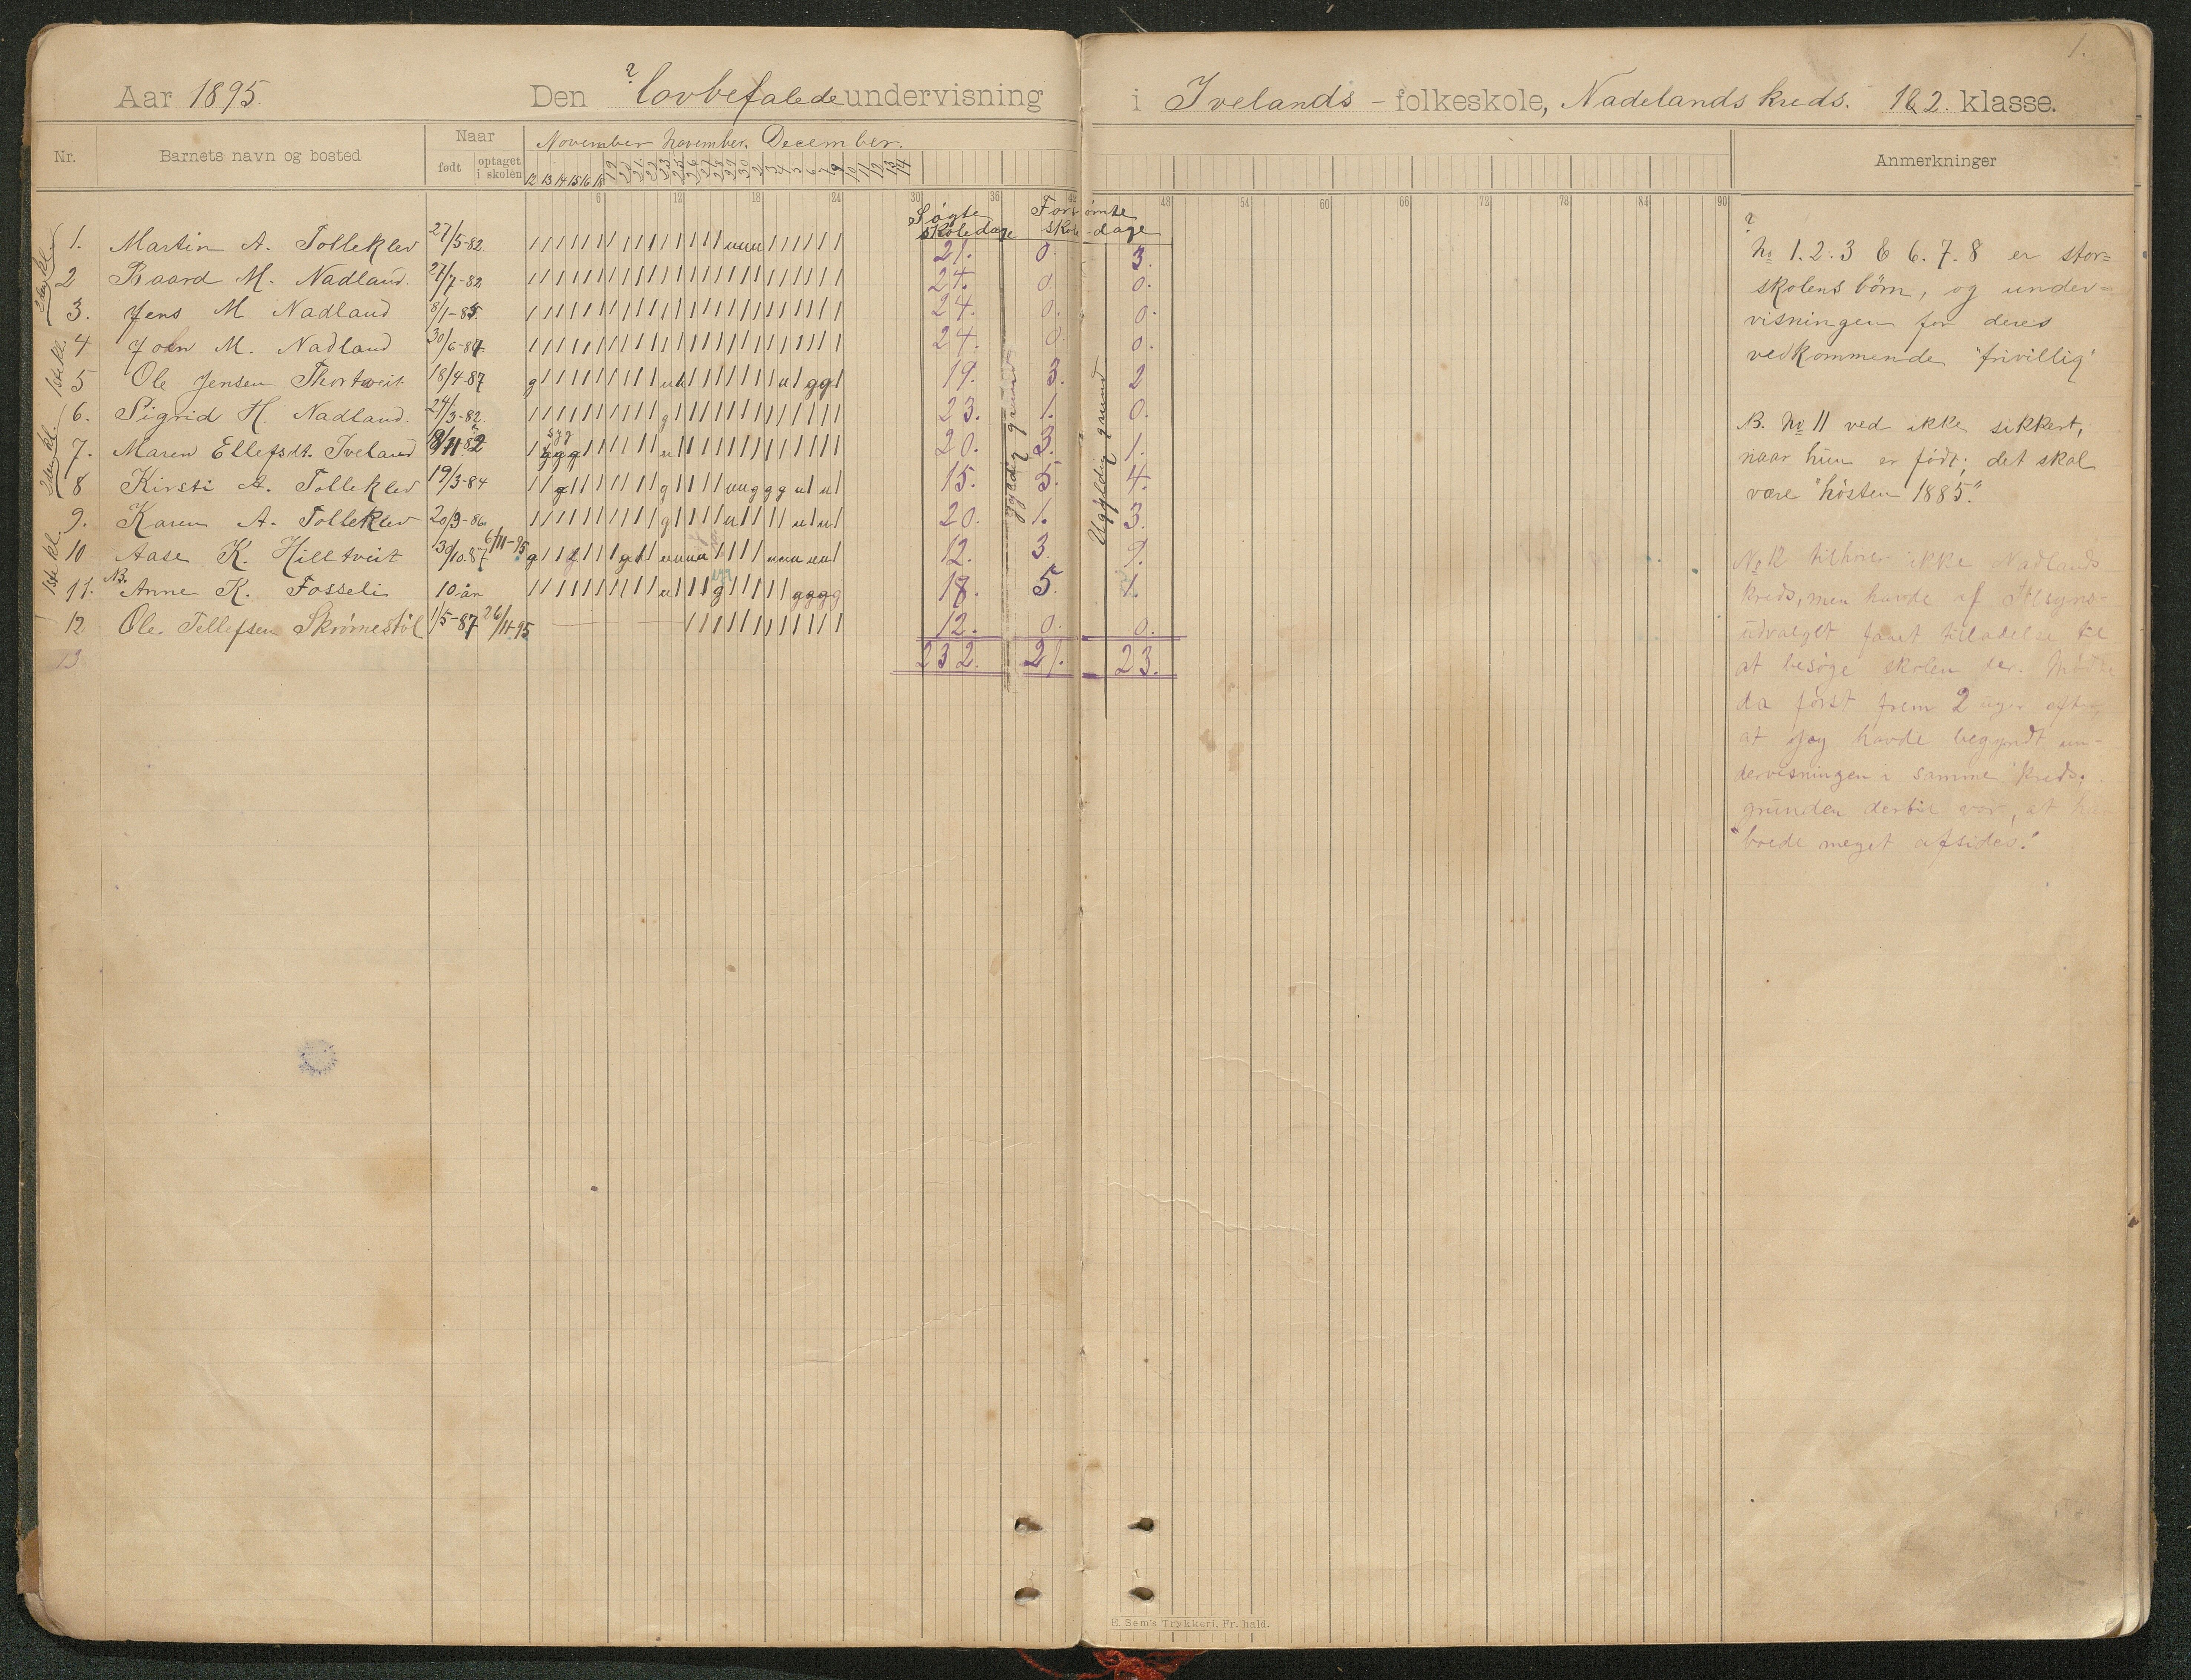 1.
Aar 1895. Den lovbefalede undervisning i Ivelands - folkeskole, Nadelands kreds. 1&2. klasse.
Nr. Barnets navn og bosted Naar født optaget i skolen November November. December. Anmerkninger
12 13 14 15 16 18 19
6 12 18 24 30 36 42 48 54 60 66 72 78 84 90
Søgte skoledage Forsømte skole-dage
gyldig grund Ugyldig grund
2den kl.
1. Martin A. Tolleklev 27/5-82. 21. 0. 3.
2 Baard M. Nadland. 27/7-82 24. 0. 0.
3. Jens M Nadland 8/1-85. 24. 0. 0.
1ste kl.
4 John M. Nadland 30/6-87. 24. 0 0.
5 Ole Jensen Thortveit 18/4-87 19. 3. 2
2den kl.
6. Sigrid H. Nadland. 24/3-82 23. 1. 0.
7. Maren Ellefsdt. Iveland 20. 3. 1.
8 Kirsti A. Tolleklev 19/3-84 15. 5. 4.
1ste kl.
9. Karen A. Tolleklev 20/9-86 20. 1. 3.
10 Aase K. Hilltveit 30/10.87 6/11-95 12. 3. 9.
NB.
11. Anne K. Fosseli 10 år 18. 5. 1.
12 Ole Tellefsen Skrømestøl 1/5-87 26/11.95 12. 0. 0.
13 232. 21. 23.
No 1.2.3 & 6.7.8 er stor=
skolens børn, og under=
visningen for deres
vedkommende "frivillig"
B. No 11 ved ikke sikkert,
naar hun er født; det skal
være "høsten 1885".
No 12 tilhører ikke Nadlands
kreds, men havde af Tilsyns=
udvalget faaet tilladelse til
at besøge skolen der. Mødte
da først frem 2 uger efter,
at jeg havde begyndt un=
dervisningen i samme kreds;
grunden dertil var, at han
"boede meget afsides."
E. Sem's Trykkeri. Fr.hald.